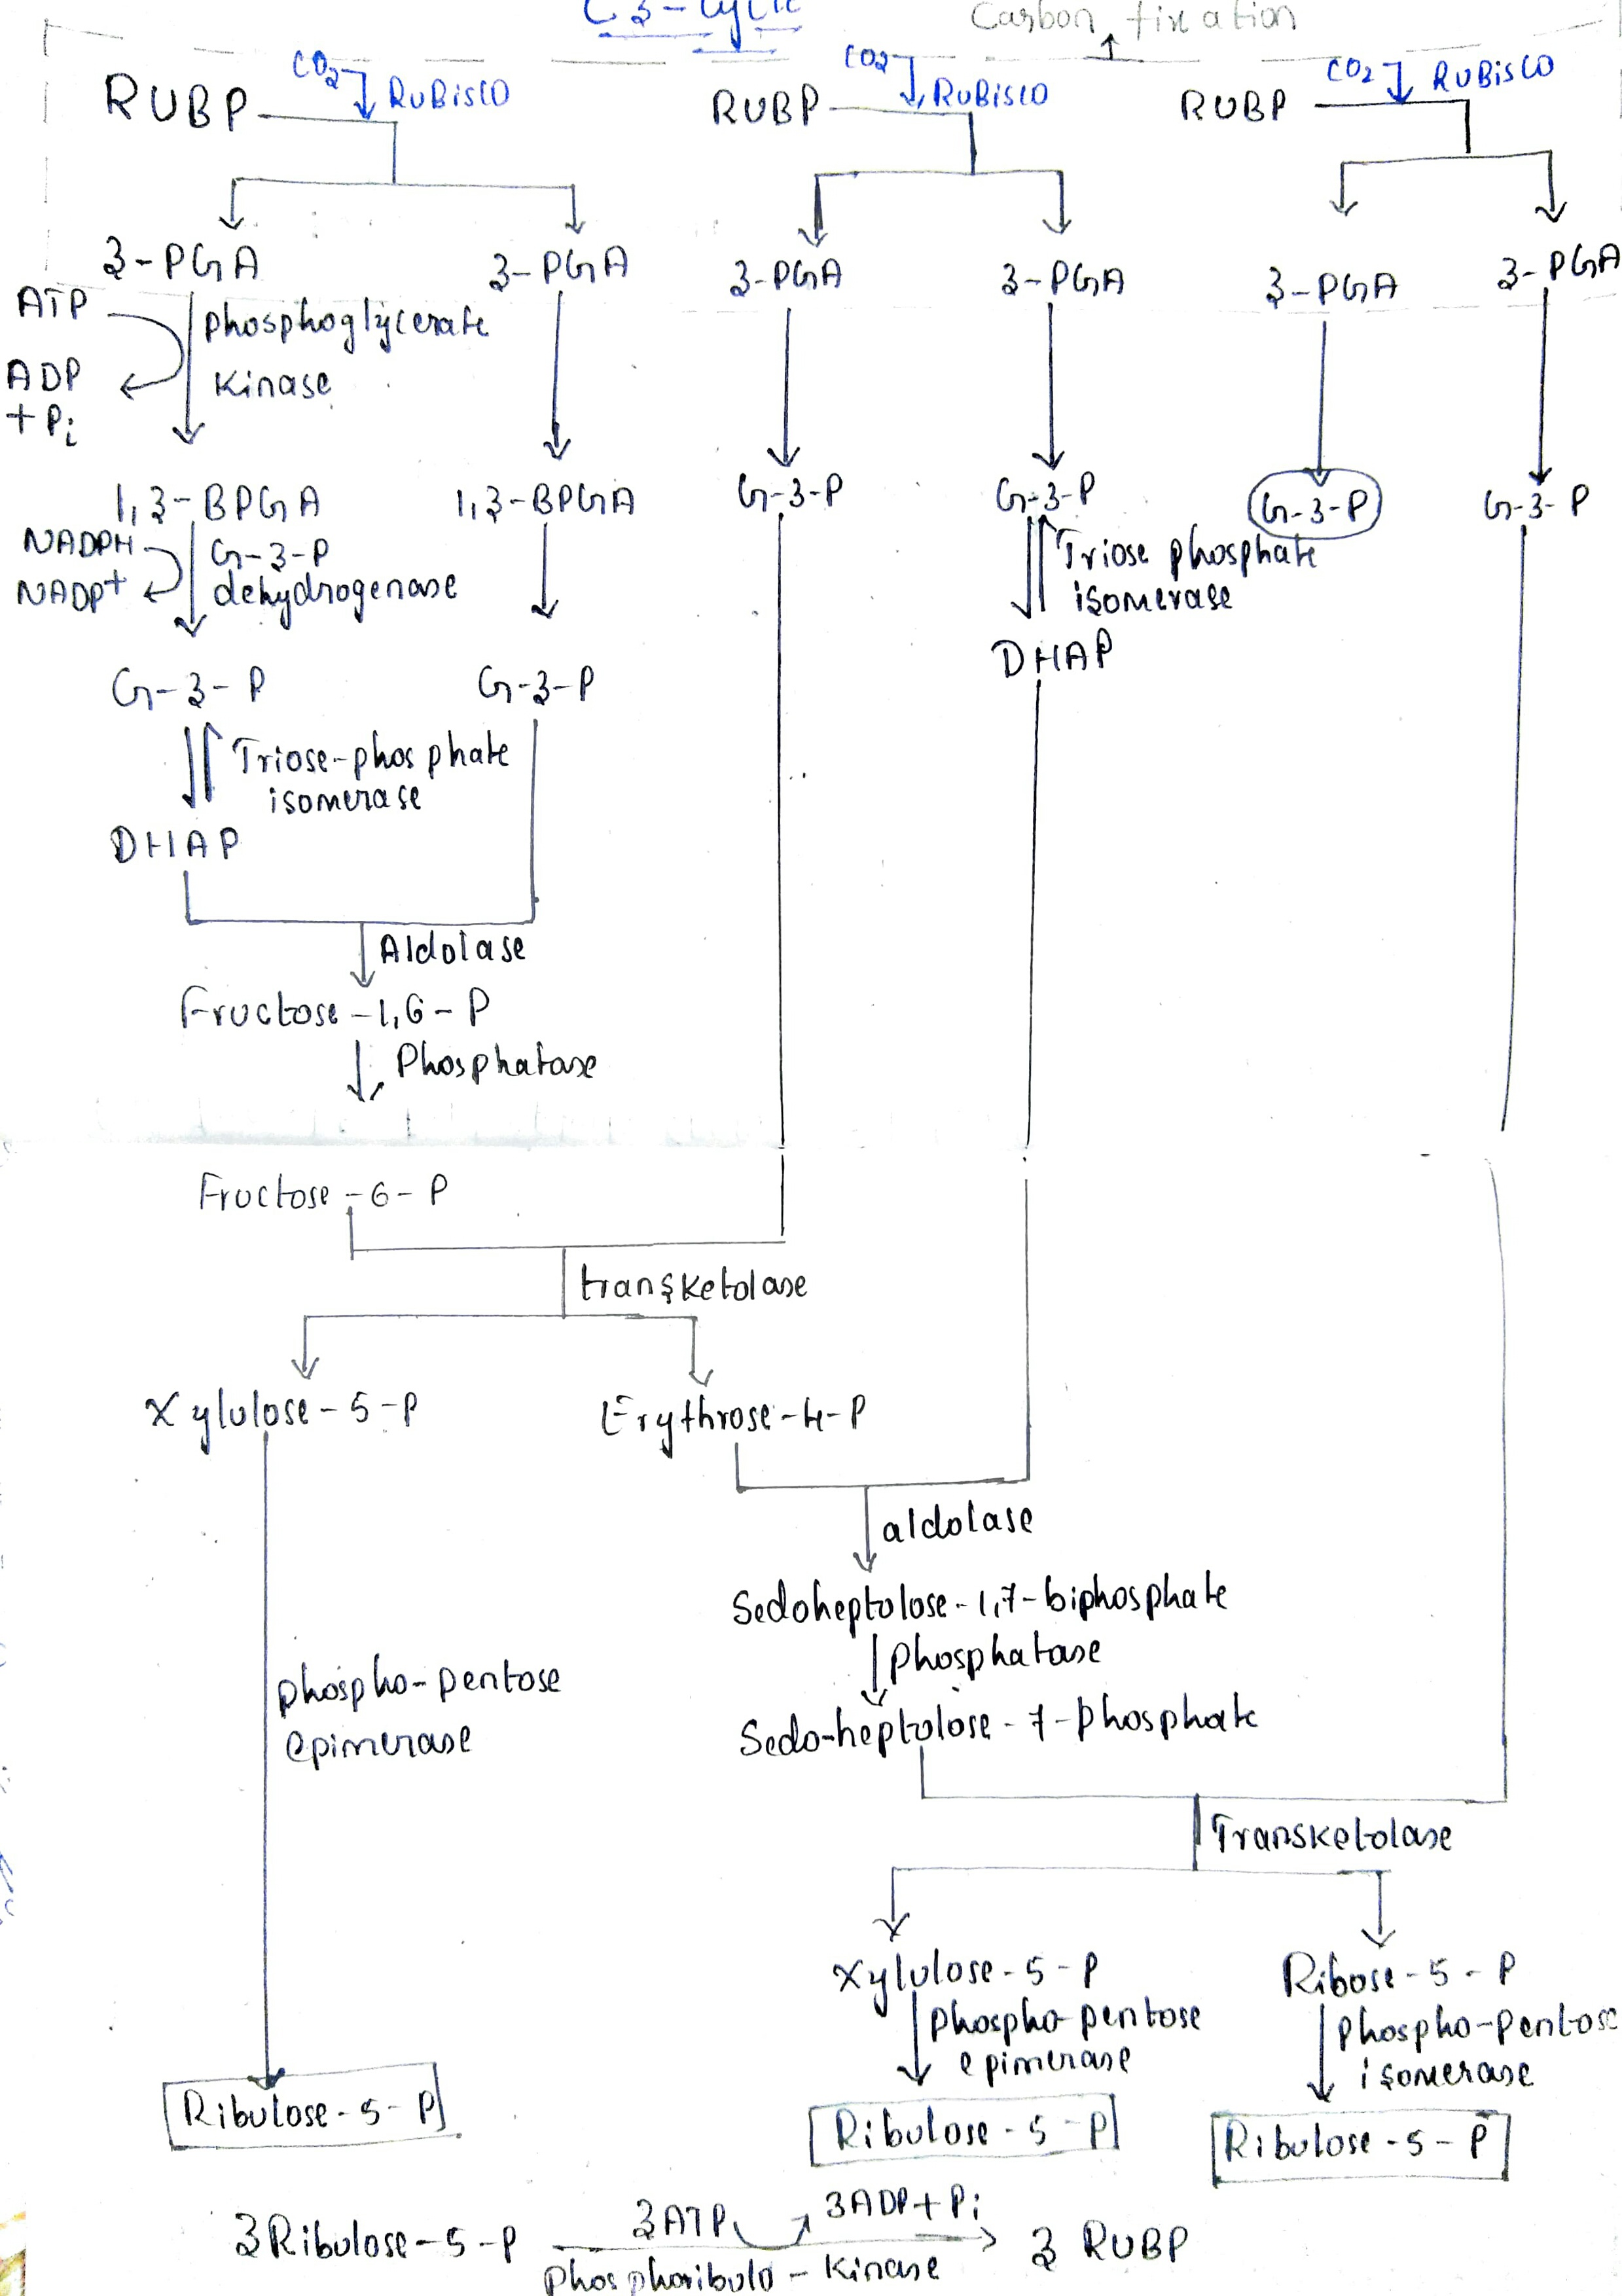 C3-Cycle
Carbon fixation
RUBP CO2 RUBisCO RUBP CO2 RUBisCO RUBP CO2 RUBisCO
3-PGA 3-PGA 3-PGA 3-PGA 3-PGA 3-PGA
ATP phosphoglycerate
ADP kinase
+ Pi
1,3-BPGA 1,3-BPGA G-3-P G-3-P G-3-P G-3-P
NADPH G-3-P Triose phosphate
NADP+ dehydrogenase isomerase
DHAP
G-3-P G-3-P
Triose-phosphate
isomerase
DHAP
Aldolase
Fructose-1,6-P
Phosphatase
Fructose-6-P
transketolase
Xylulose-5-P Erythrose-4-P
aldolase
Sedoheptolose-1,7-biphosphate
phosphatase
Sedo-heptolose-7-phosphate
phospho-pentose
epimerase
Transketolase
Xylulose-5-P Ribose-5-P
phospho-pentose phospho-pentose
epimerase isomerase
Ribulose-5-P Ribulose-5-P Ribulose-5-P
3Ribulose-5-P 3ATP 3ADP+Pi 3 RUBP
Phosphoribulo-kinase